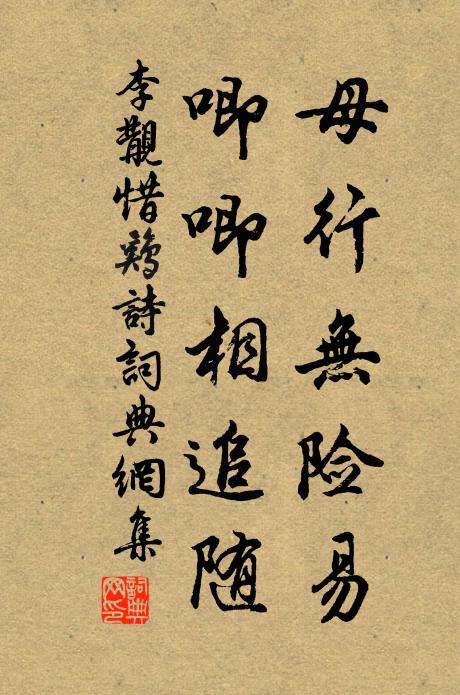 母行無险易
唧唧相追随
李覯惜鷄詩詞典網集
詞典
网印